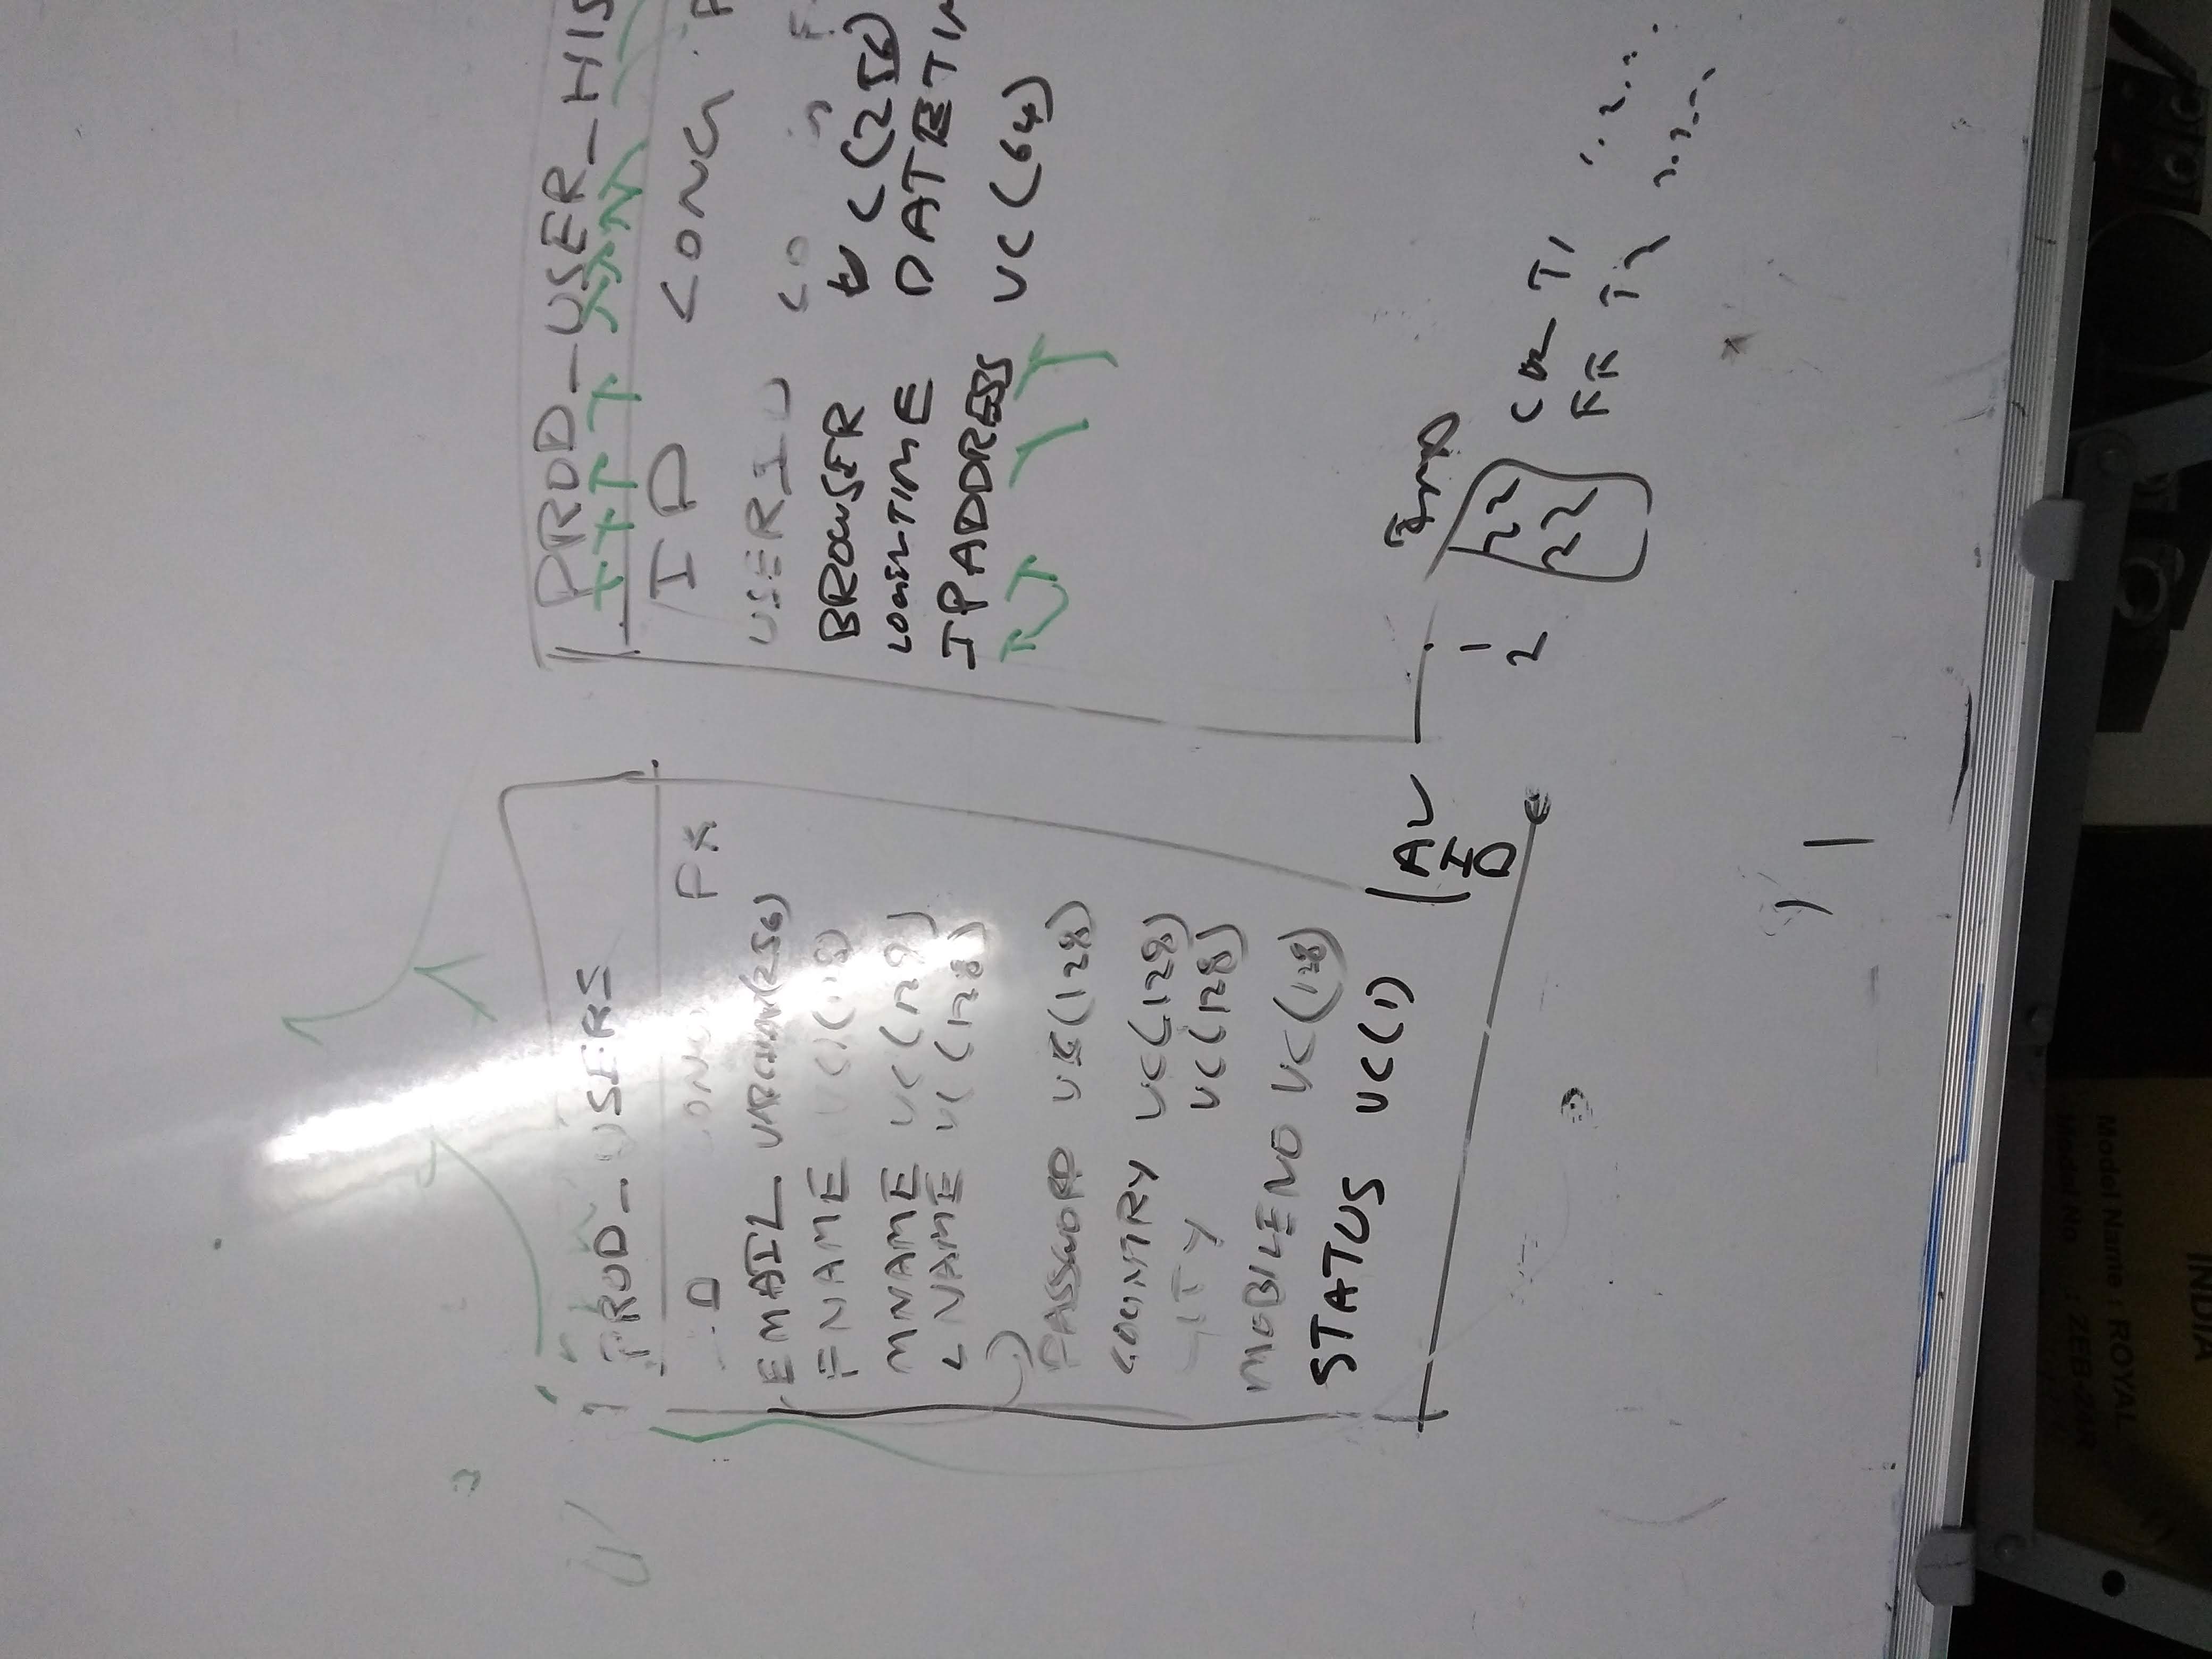 PROD_USERS
ID LONG PK
EMAIL VARCHAR(256)
FNAME VC(128)
MNAME VC(128)
LNAME VC(128)
PASSWORD VC(128)
COUNTRY VC(128)
CITY VC(128)
MOBILENO VC(128)
STATUS VC(1)
A
H
D
PROD_USER_HIS
ID LONG P
USERID LO F
BROWSER VC(256)
LOGINTIME DATETIM
IPADDRESS VC(64)
1 22 T1
2 22 FF T2
Model No : ZEB-24R
Model Name : ROYAL
INDIA